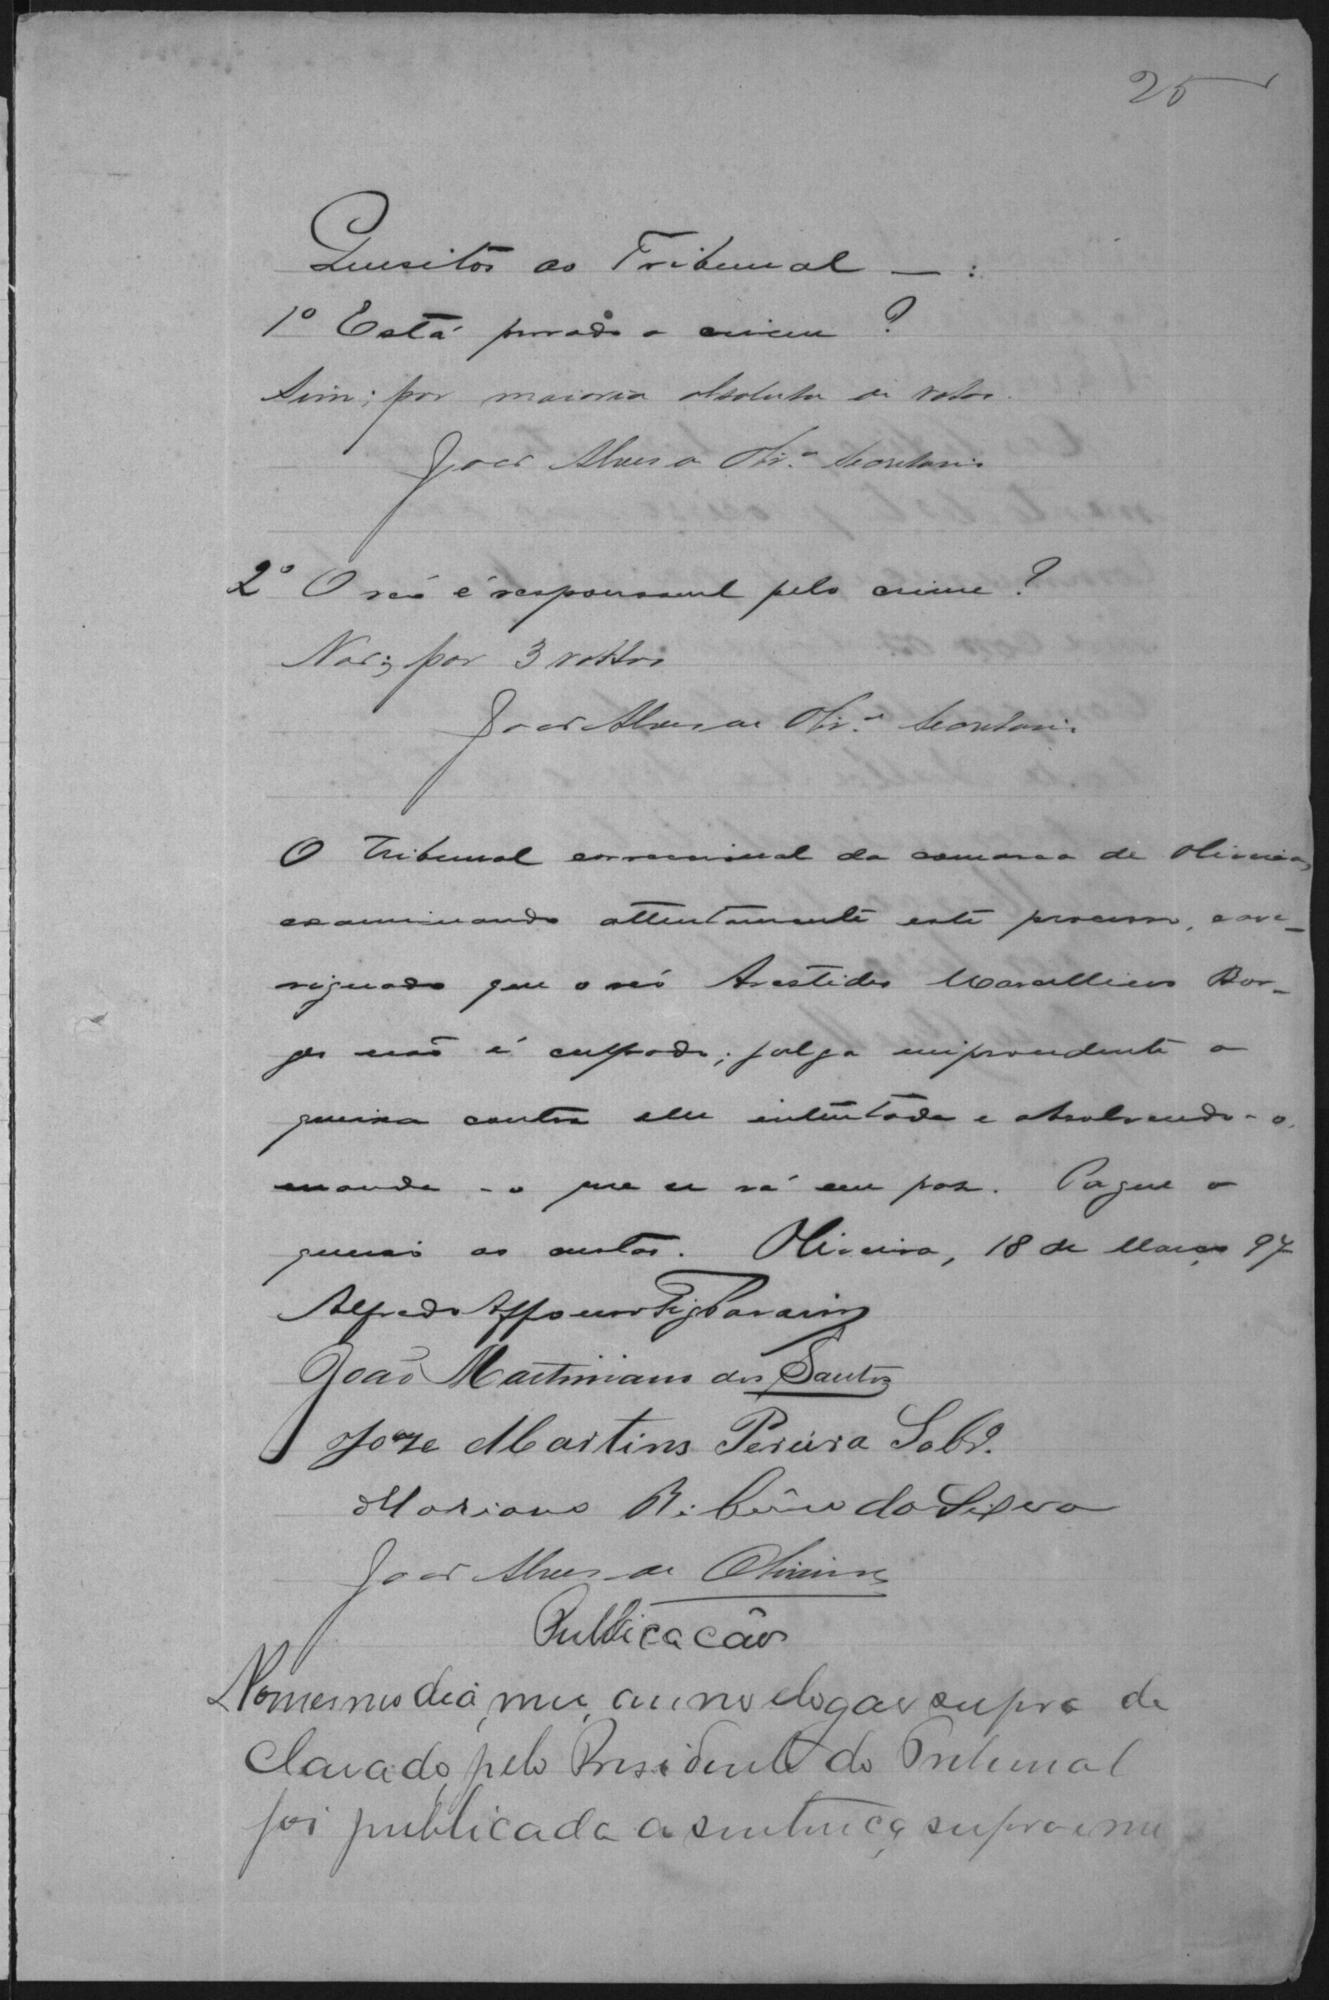 25
Quesitos ao Tribunal — :
1º Está provado o crime ?
Sim; por maioria absoluta de votos.
João Alves de Olivr.ª Secretario
2º O réo é responsavel pelo crime ?
Não; por 3 vottos
João Alves de Olivr.ª Secretario
O Tribunal correccional da comarca de Oliveira,
examinando attentamente este processo, e ave-
riguado que o réo Arestides Marcellino Bor-
ges não é culpado; julga improcedente a
queixa contra elle intentada e absolvendo-o,
manda-o que se vá em paz. Pague o
queixo as custas. Oliveira, 18 de Março 97
Alfredo Affonso
João Martiniano dos Santos
Joze Martins Pereira Sobr.
Mariano Ribeiro da Silva
João Alves de Oliveira
Publicacão
No mesmo dia, mez, anno e logar supra de
clarado, pelo Presidente do Tribunal
foi publicada a sentença supra em